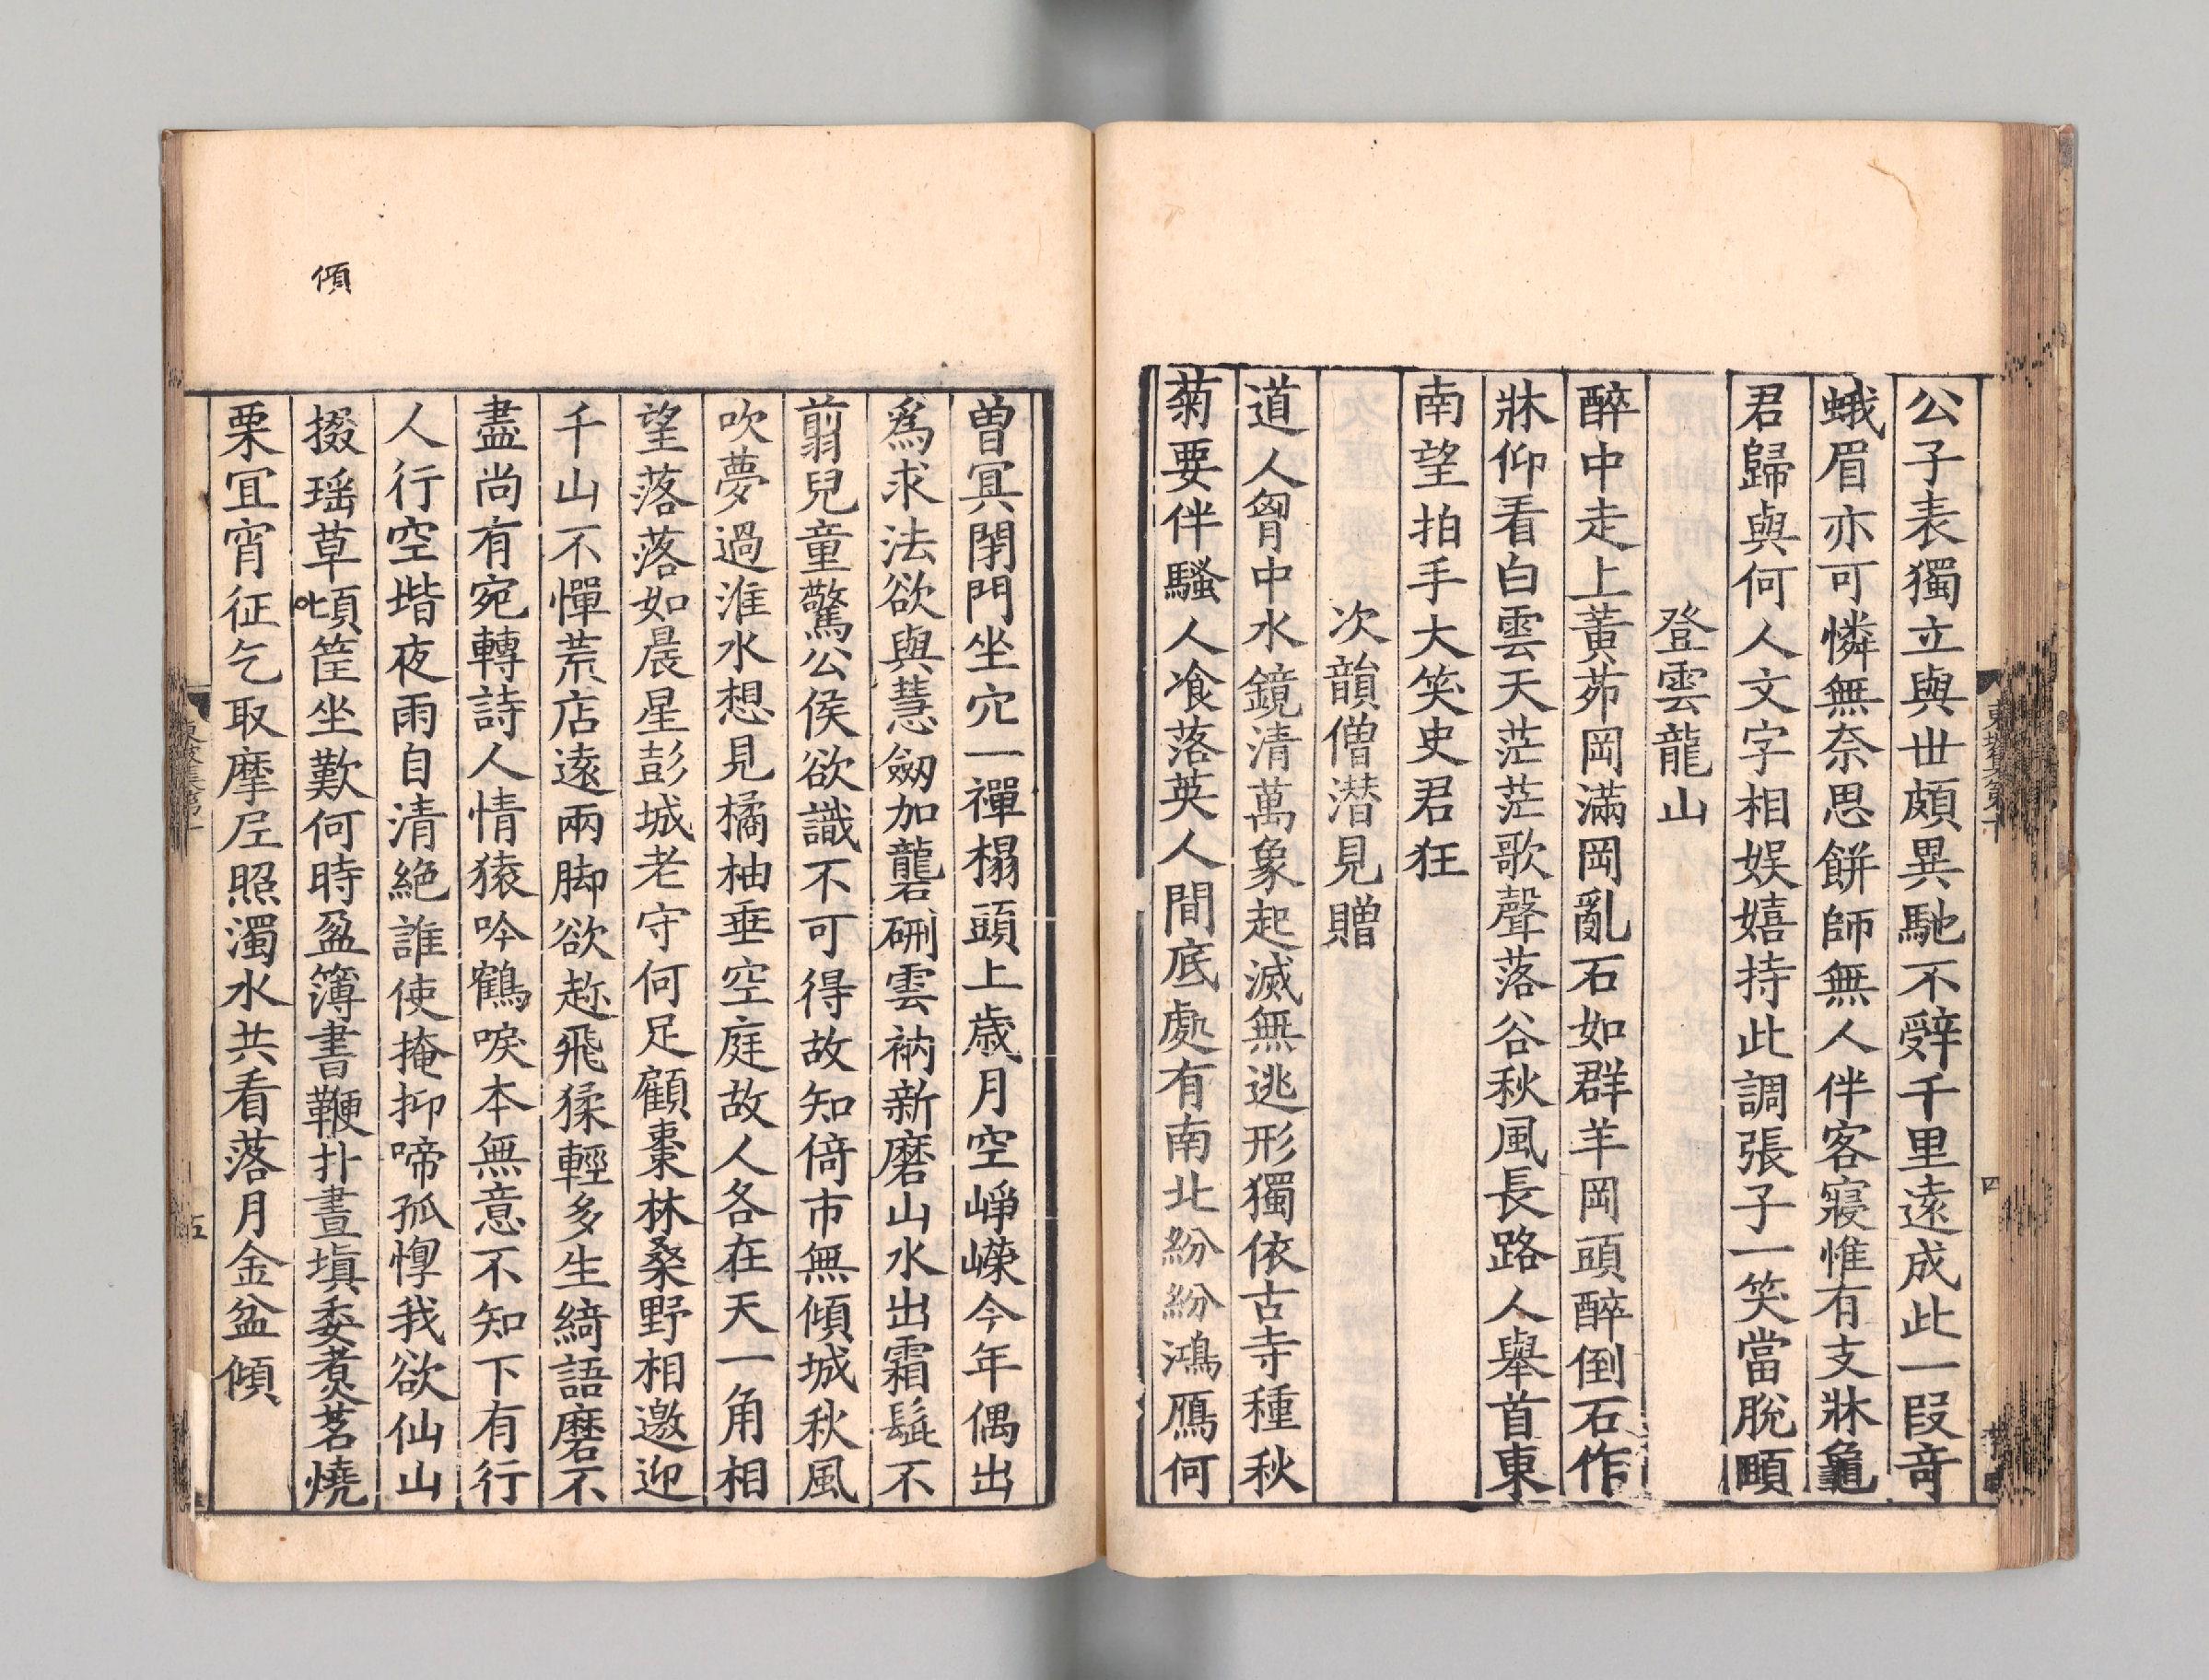 公子表獨立與世頗異馳不辤千里遠成此一段竒
蛾眉亦可憐無奈思餅師無人伴客寢惟有支牀龜
君歸與何人文字相娱嬉持此調張子一笑當脫頤
登雲龍山
醉中走上黃茆岡滿岡亂石如群羊岡頭醉倒石作
牀仰看白雲天茫茫歌聲落谷秋風長路人舉首東
南望拍手大笑史君狂
次韻僧潜見贈
道人胷中水鏡清萬象起滅無逃形獨依古寺種秋
菊要伴騷人飡落英人間底處有南北紛紛鴻鴈何
東坡集第十
四
曽冥閉門坐穴一禪榻頭上歳月空崢嶸今年偶出
爲求法欲與慧劒加礱硎雲衲新磨山水出霜髭不
翦兒童驚公侯欲識不可得故知倚市無傾城秋風
吹夢過淮水想見橘柚垂空庭故人各在天一角相
望落落如晨星彭城老守何足顧棗林桑野相邀迎
千山不憚荒店遠兩脚欲趂飛猱輕多生綺語磨不
盡尚有宛轉詩人情猿吟鶴唳本無意不知下有行
人行空堦夜雨自清絶誰使掩抑啼孤惸我欲仙山
掇瑶草頃筐坐歎何時盈簿書鞭扑晝塡委煑茗燒
栗冝宵征乞取摩尼照濁水共看落月金盆傾
傾
東坡集第十
五